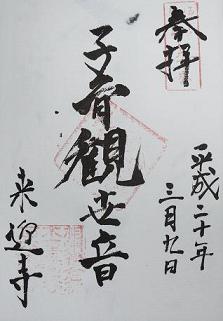 奉拝
平成二十年
三月九日
子育観世音
来迎寺